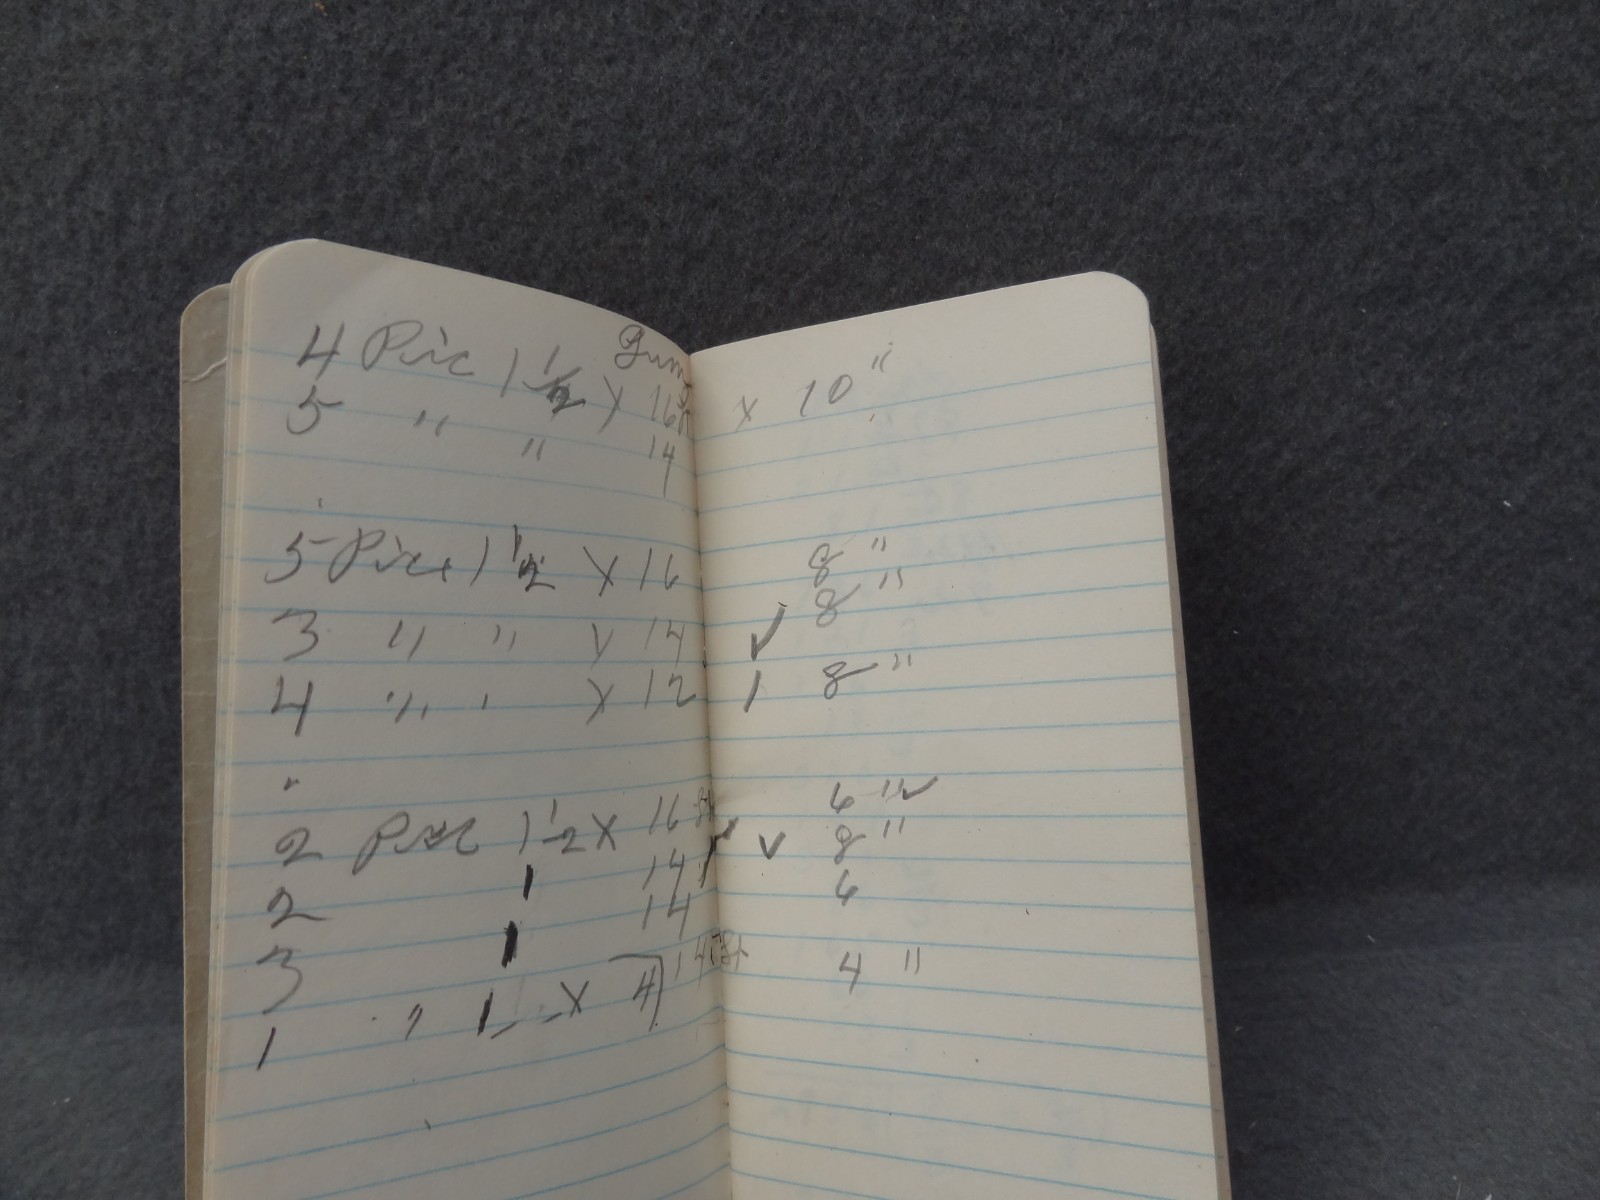 Gum
4 Pic 1 1/2 X 16ft x 10"
5 " " 14 '
5 Pics 1 1/2 X 16 8"
3 " " X 14 ✓ 8"
4 " ' X 12 1 8"
2 Pic 1 1/2 X 16 ft 6" ✓
2 1 14 ✓ ✓ 8"
3 1 14 6
1 " 1 X 4 14 ft 4"